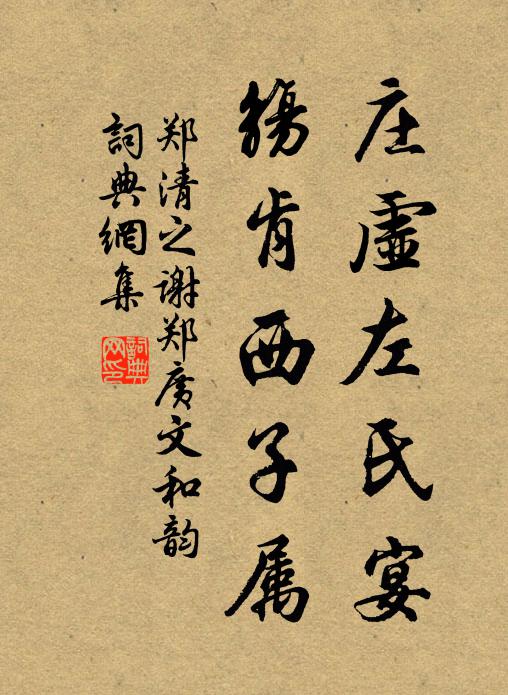 庄虚左氏宴
觞肯西子属
郑清之谢郑广文和韵
詞典網集
詞典网印